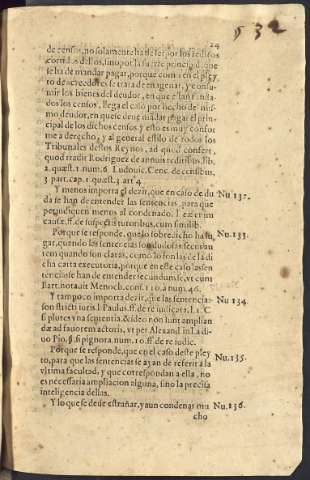 24
de censur, no solamente ha de ser por los reditos
corridos dellos, sino por la suerte principal, que
se ha de mandar pagar, porque como en el p. 57.
to de acreedores se trata de enagenar, y consu-
mir los bienes del deudor, en que estan funda-
dos los censos, llega el caso por hecho del mis-
mo deudor, en que se deue mandar pagar el prin-
cipal de los dichos censos y esto es muy confor
me a derecho, y al general estilo de todos los
Tribunales destos Reynos, ad quod confert,
quod tradit Rodriguez de annuis reditibus lib.
2. quæst. 1. num. 6 Ludouic. Cenc. de censibus,
3 part. cap. 1. quæst. 3 art 4
Y menos importa el dezir, que en caso de du
da se han de entender las sentencias, para que
perjudiquen menos al condenado, l. ex cum
causa. ff. de suspectis tutoribus, cum similib.
Nu 132.
Porque se responde, que lo sobredicho ha lu
gar, quando las sentencias son dudosas; secus au
tem quando son claras, como lo son las de la di
cha carta executoria, porque en este caso las sen
tencias se han de entender secundum se, vt cum
Bart. notauit Menoch. cons. 110. a num. 46.
Nu. 133.
Y tampoco importa dezir, que las sentencias
son stricti iuris l. Paulus. ff. de re iudicat. l. 1. C.
si plures vna sententia. & ideo non sunt amplian
dæ ad fauorem actoris, vt per Alexand in l. a di-
uo Pio. §. si pignora num. 10. ff. de re iudic.
Nu 134.
Porque se responde, que en el caso deste pley
to, para que las sentencias se ayan de referir a la
vltima facultad, y que correspondan a ella, no
es necessaria ampliacion alguna, sino la precisa
inteligencia dellas.
Nu. 135.
Y lo que se deue estrañar, y aun condenar mu
Nu. 136.
cho